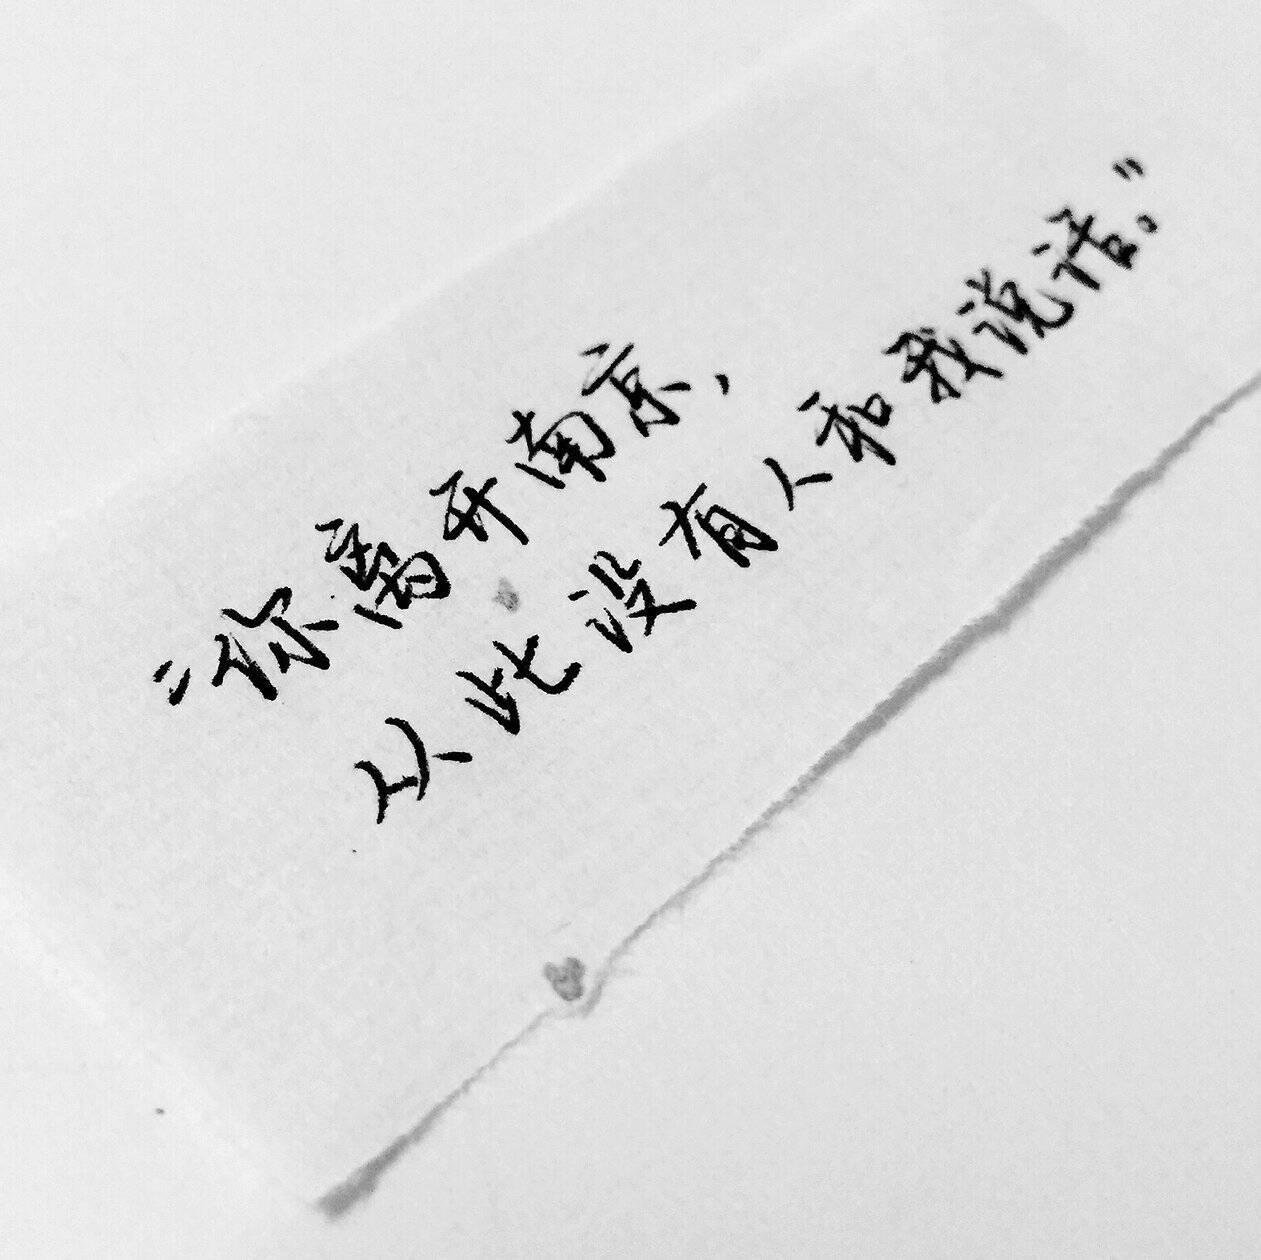 “你离开南京，
以此没有人和我说话。”